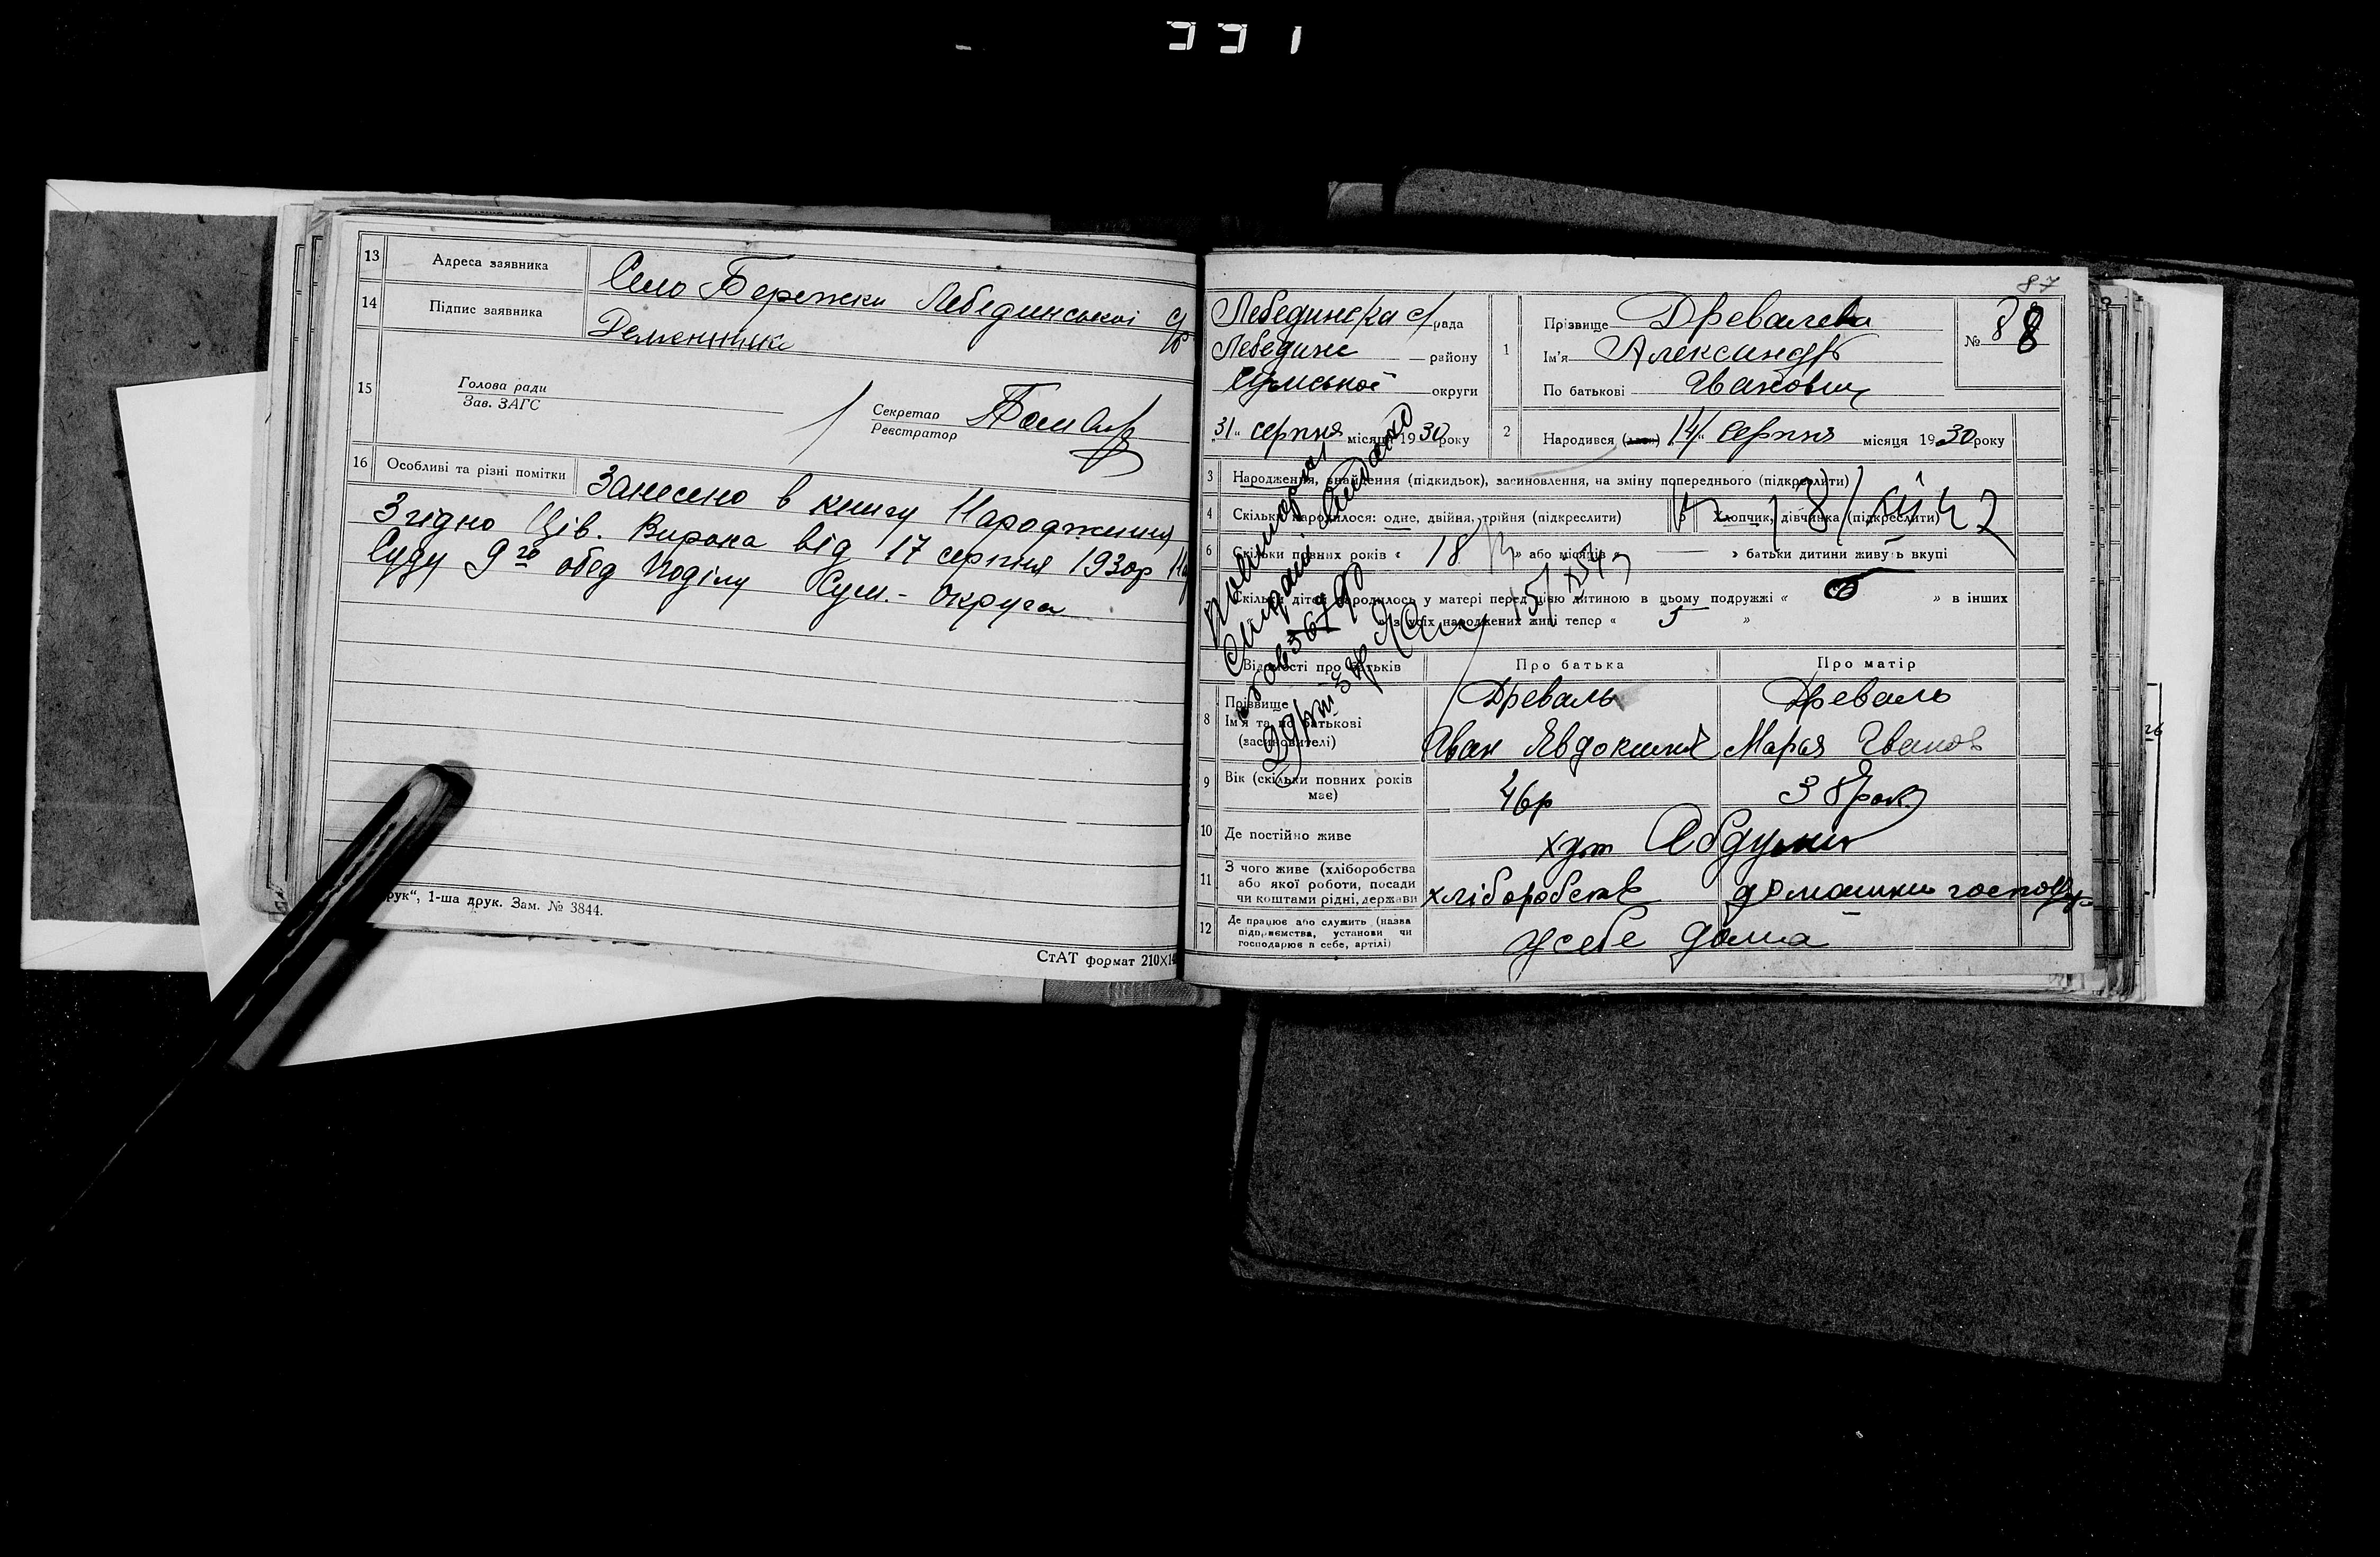 331
13 Адреса заявника Село Бережки Лебединської с/р
14 Підпис заявника
15 Голова ради
Зав. ЗАГС
Секретар
Реєстратор
16 Особливі та різні помітки Занесено в книгу Народження
Згідно Ців. Вирока від 17 серпня 1930р
Суду 9го обед поділу Сум.- Округа
рук“, 1-ша друк. Зам. № 3844.
СтАТ формат 210×14
87
Лебединська с/рада
Лебединс району
Сумської округи
„31„ серпня місяця 1930 року
1 Прізвище Древалева
Ім'я Александр
По батькові Іванович
№ 88
2 Народився (лась) 14„ Серпня місяця 1930 року
3 Народження, знайдення (підкидьок), засиновлення, на зміну попереднього (підкреслити)
4 Скільки народилося: одне, двійня, трійня (підкреслити) 5 Хлопчик, дівчинка (підкреслити)
6 Скільки повних років « 18 » або місяців « — » батьки дитини живуть вкупі
Скільки дітей народилось у матері перед цією дитиною в цьому подружжі « 6 » в інших
з усіх народжених живі тепер « 5 »
Відомості про батьків Про батька Про матір
8 Прізвище
Ім'я та по батькові
(засиновителі)
Древаль Древаль
Іван Явдокимов Марья Іванов
9 Вік (скільки повних років має) 46р 38 рок
10 Де постійно живе хут
11 З чого живе (хліборобства або якої роботи, посади чи коштами рідні, держави хліборобств домашнь господ
12 Де працює або служить (назва підприємства, установи чи господарює в себе, артілі) у себе дома